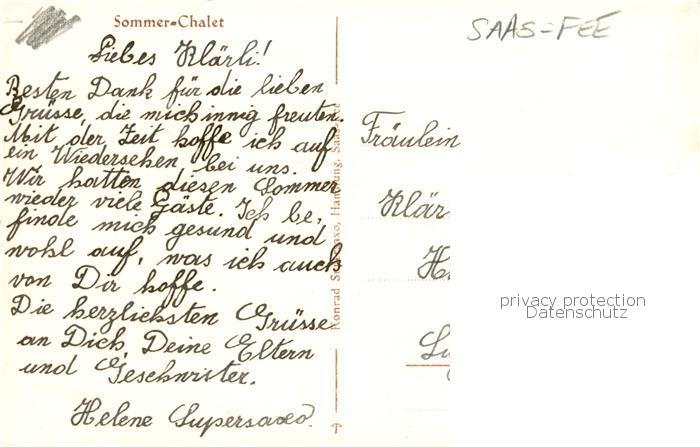 Sommer-Chalet
SAAS-FEE
Liebes Klärli!
Besten Dank für die lieben
Grüsse, die mich innig freuten.
Mit der Zeit hoffe ich auf
ein Wiedersehen bei uns.
Wir hatten diesen Sommer
wieder viele Gäste. Ich be,
finde mich gesund und
wohl auf, was ich auch
von Dir hoffe.
Die herzlichsten Grüsse
an Dich, Deine Eltern
und Geschwister.
Helene Supersaxo.
Konrad
Handlung, Saas-Fee
Fräulein
Klär
H
privacy protection
Datenschutz